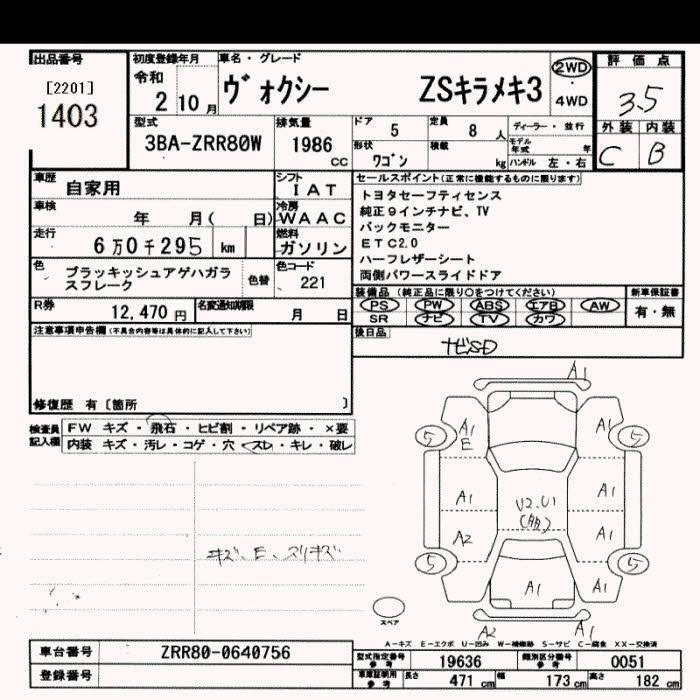 出品番号 初度登録年月 車名・グレード 評価点
[2201] 令和
1403 2 10月 ヴォクシー ZSキラメキ3 2WD・4WD 3.5
外装 内装
C B
型式 排気量 ドア 5 定員 8人 ディーラー・並行
3BA-ZRR80W 1986cc 形状 ワゴン 積載 kg モデル年式 年
ハンドル 左・右
車歴 自家用 シフト IAT セールスポイント(正常に機能するものに限ります)
車検 年 月( 日) 冷房 WAAC
走行 6万0千295 km 燃料 ガソリン
色 ブラッキッシュアゲハガラスフレーク 色替 色コード 221
トヨタセーフティセンス
純正9インチナビ、TV
バックモニター
ETC2.0
ハーフレザーシート
両側パワースライドドア
R券 12,470円 名変通知期限 月 日
装備品(純正品に限り○をつけてください) 新車保証書
PS PW ABS エアB AW 有・無
SR ナビ TV カワ
注意事項申告欄(不具合内容等は具体的に記入して下さい) 後日品
ナビSD
修復歴 有〔箇所 〕
検査員記入欄 FW キズ・飛石・ヒビ割・リペア跡・×要
内装 キズ・汚レ・コゲ・穴・スレ・キレ・破レ
A1
5 A1 A1 5
E
A1 A1
U2.U1
A2 A1
5 A1 A1 5
キズ、E、スリキズ
スペア
A2 A1
A-キズ E-エクボ U-凹み W-補修跡 S-サビ C-腐食 XX-交換済
車台番号 ZRR80-0640756 型式指定番号 参考 19636 類別区分番号 参考 0051
登録番号 車庫証明用 参考 長さ 471cm 幅 173cm 高さ 182cm